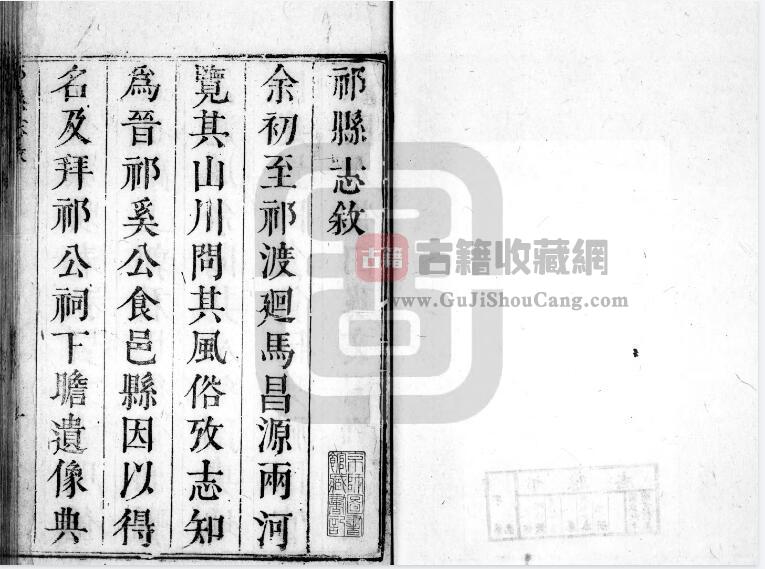 祁縣志敘
余初至祁渡廻馬昌源兩河
覽其山川問其風俗攷志知
為晉祁奚公食邑縣因以得
名及拜祁公祠下瞻遺像典
京師圖書
館藏書記
古籍
古籍收藏網
www.GuJiShouCang.com